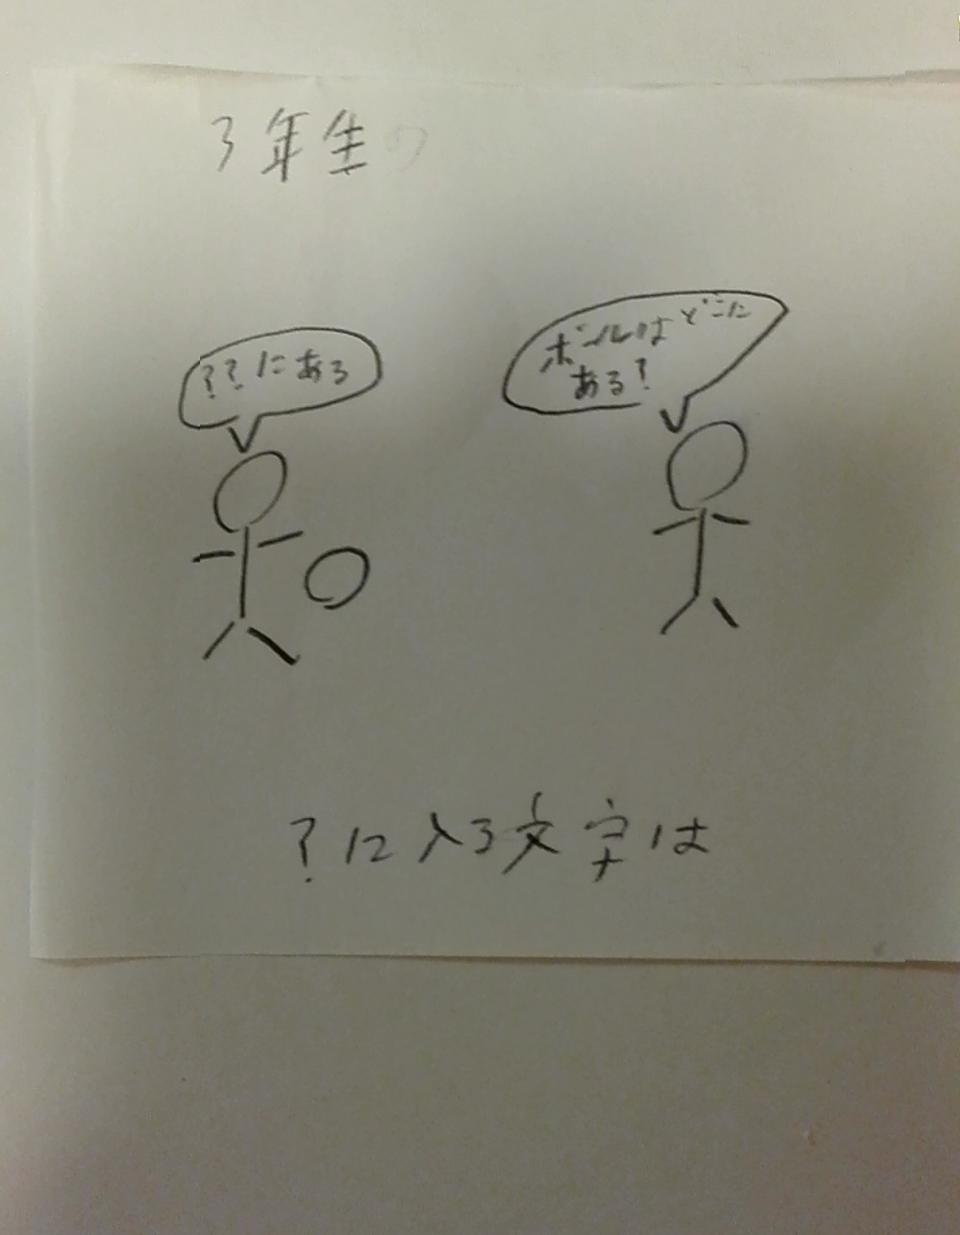 3年生の
??にある
ボールはどこに
ある?
?に入る文字は